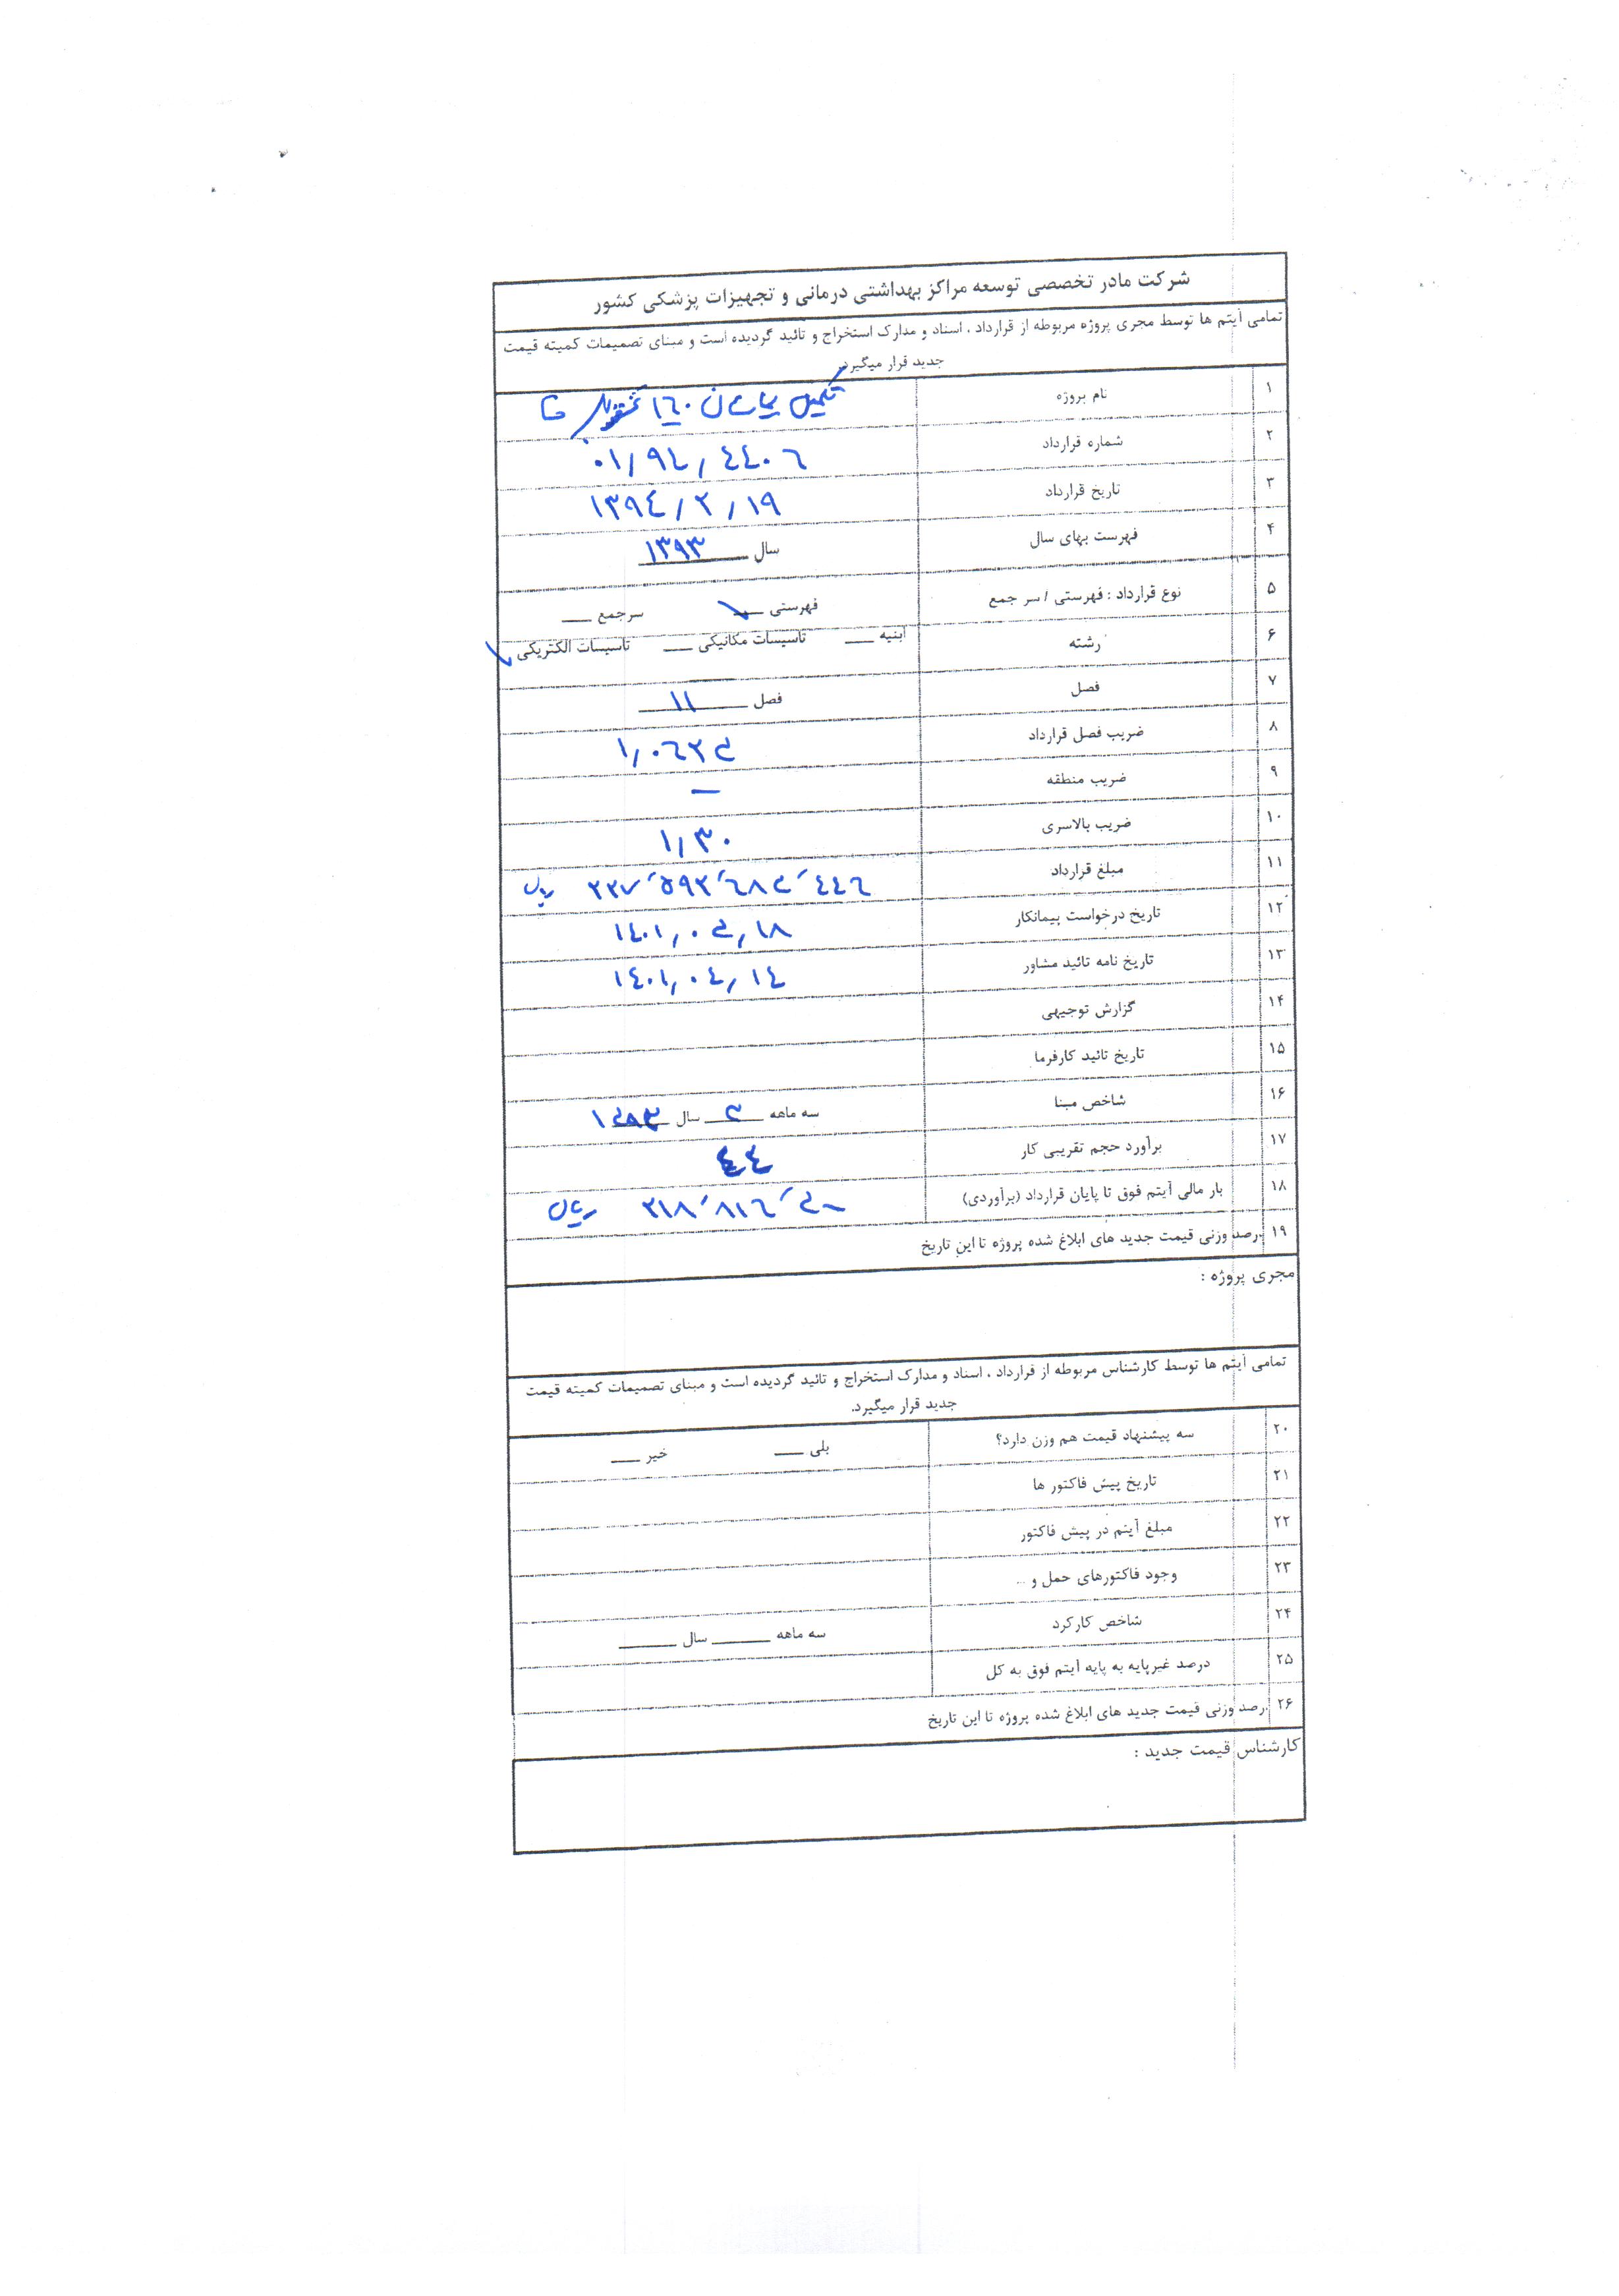 شرکت مادر تخصصی توسعه مراکز بهداشتی درمانی و تجهیزات پزشکی کشور
تمامی آیتم ها توسط مجری پروژه مربوطه از قرارداد ، اسناد و مدارک استخراج و تائید گردیده است و مبنای تصمیمات کمیته قیمت
جدید قرار میگیرد.
۱ نام پروژه تکمیل بیمارستان ۱۶۰
۲ شماره قرارداد ۰۱/۹۴/۴۴۰۶
۳ تاریخ قرارداد ۱۳۹۴/۲/۱۹
۴ فهرست بهای سال سال ۱۳۹۳
۵ نوع قرارداد : فهرستی / سر جمع فهرستی سرجمع
۶ رشته ابنیه تاسیسات مکانیکی تاسیسات الکتریکی
۷ فصل فصل ۱۱
۸ ضریب فصل قرارداد
۹ ضریب منطقه –
۱۰ ضریب بالاسری ۱/۳۰
۱۱ مبلغ قرارداد ریال
۱۲ تاریخ درخواست پیمانکار
۱۳ تاریخ نامه تائید مشاور ۱۴۰۱/۰۴/۱۴
۱۴ گزارش توجیهی
۱۵ تاریخ تائید کارفرما
۱۶ شاخص مبنا سه ماهه سال
۱۷ برآورد حجم تقریبی کار ۴۴
۱۸ بار مالی آیتم فوق تا پایان قرارداد (برآوردی) ریال
۱۹ رصد وزنی قیمت جدید های ابلاغ شده پروژه تا این تاریخ
مجری پروژه :
تمامی آیتم ها توسط کارشناس مربوطه از قرارداد ، اسناد و مدارک استخراج و تائید گردیده است و مبنای تصمیمات کمیته قیمت
جدید قرار میگیرد.
۲۰ سه پیشنهاد قیمت هم وزن دارد؟ بلی خیر
۲۱ تاریخ پیش فاکتور ها
۲۲ مبلغ آیتم در پیش فاکتور
۲۳ وجود فاکتورهای حمل و ...
۲۴ شاخص کارکرد سه ماهه سال
۲۵ درصد غیرپایه به پایه آیتم فوق به کل
۲۶ رصد وزنی قیمت جدید های ابلاغ شده پروژه تا این تاریخ
کارشناس قیمت جدید :